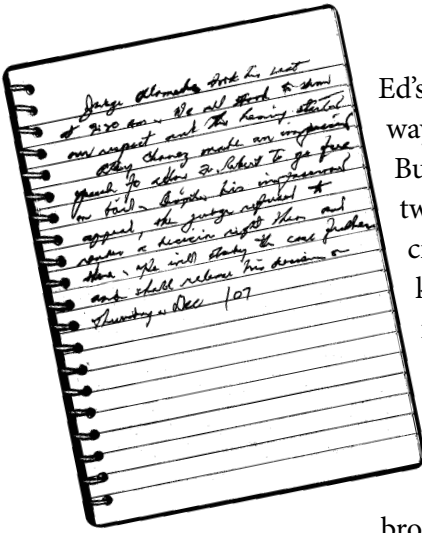 Judge Alameda took his seat
at 9:20 am. We all stood to show
our respect and the hearing started
Atty Chavez made an impassioned
speech to allow to go free
on bail. Despite his impassioned
appeal, the judge refused to
render a decision right then and
there. He will study the case further
and shall release his decision on
Thursday, Dec /07
Ed's
way
Bu
tw
ci
k
bro